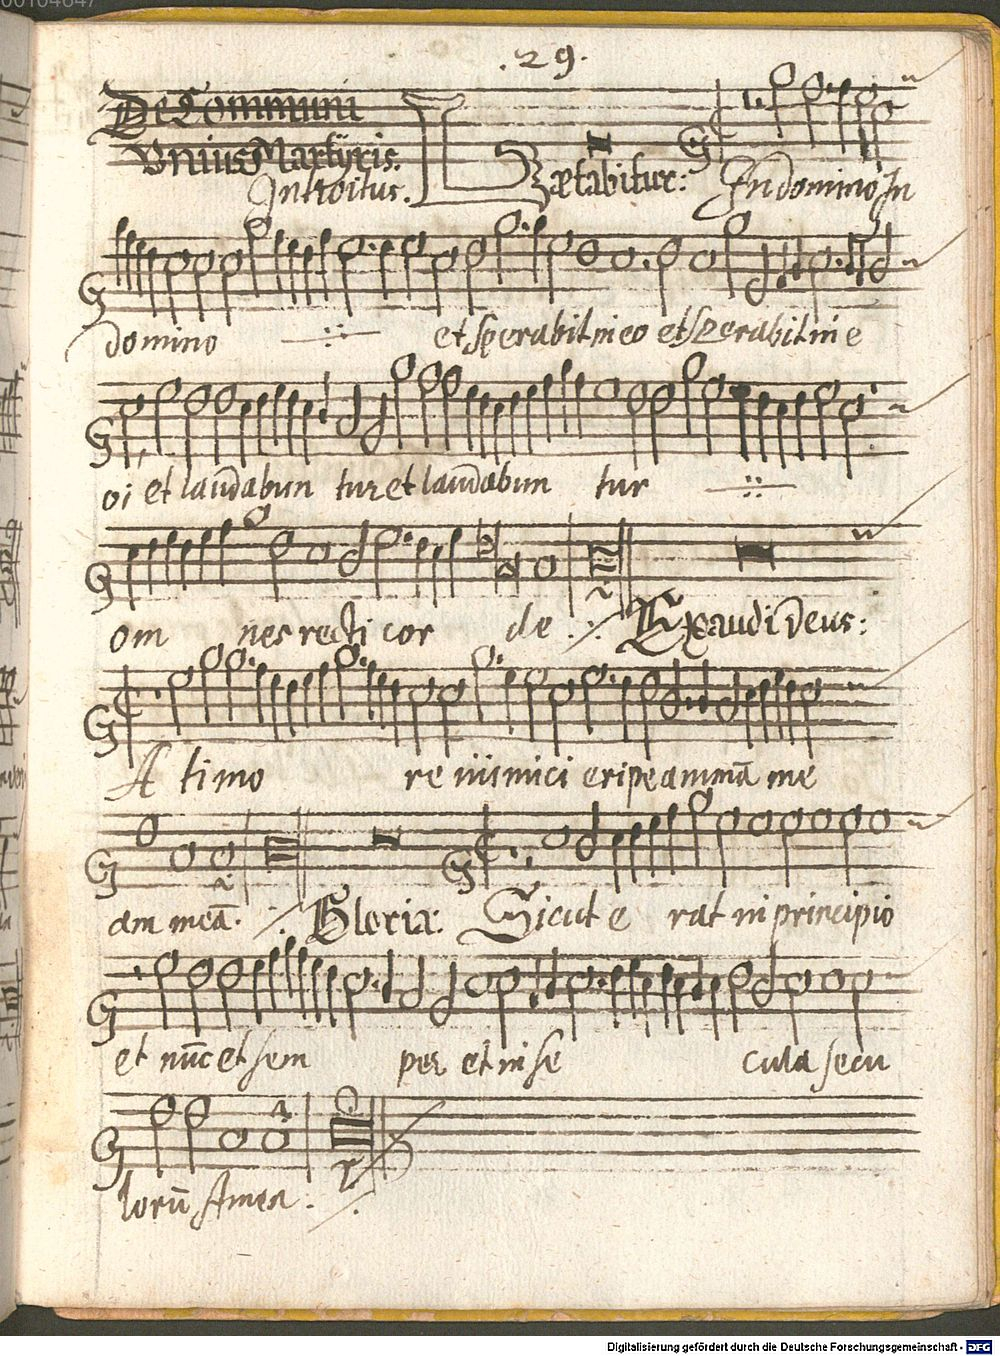 .29.
De Communi
Vnius Martyris.
Introitus.
Laetabitur: In domino In
domino et sperabit in eo et sperabit in e
oi et laudabun tur et laudabun tur
om nes recti cor de. Exaudi Deus:
A timo re inimici eripe animã me
am meã. Gloria: Sicut e rat in principio
et nũc et sem per et in se cula secu
lorũ Amen.
Digitalisierung gefördert durch die Deutsche Forschungsgemeinschaft - DFG